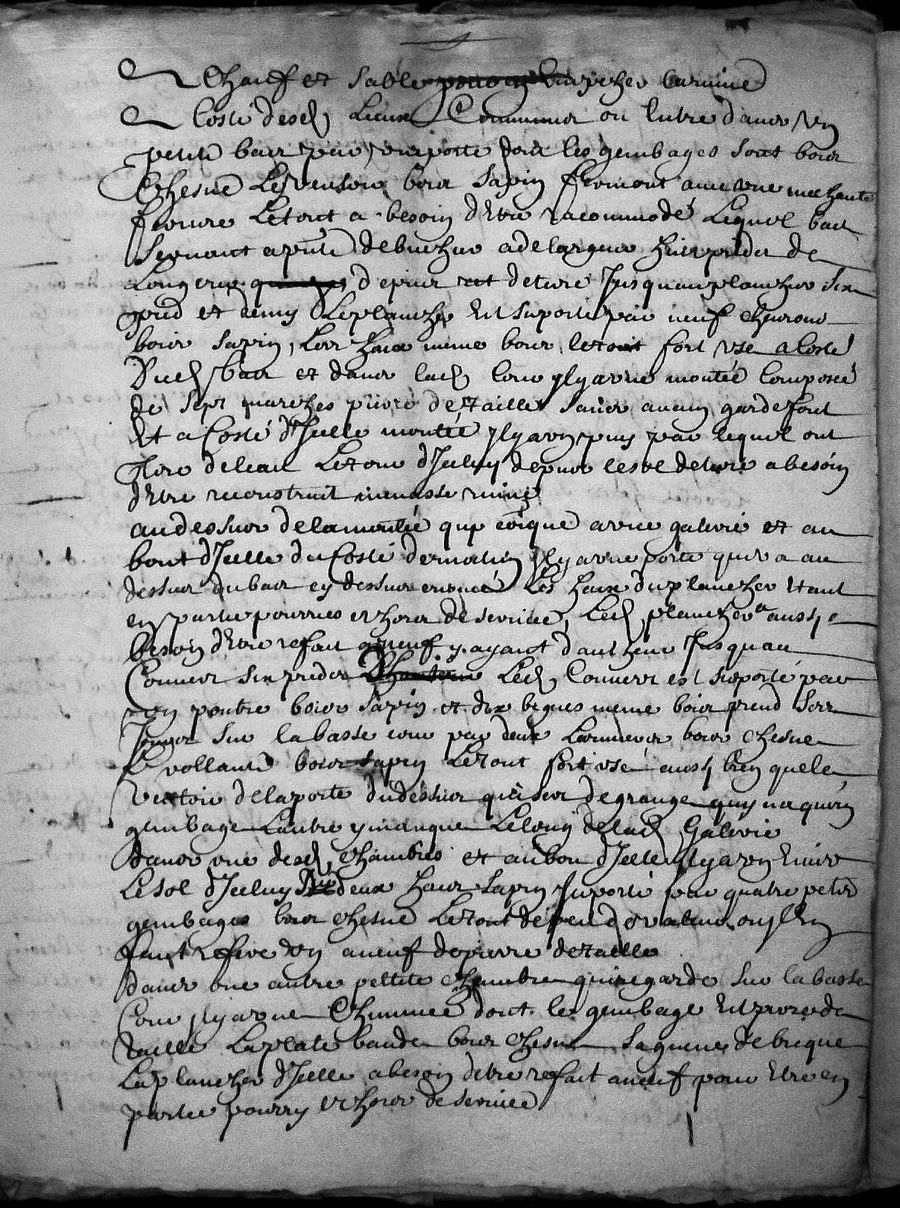 Chauf et Sable
Costé desd Lieux Communs ou Entre dans Un
petite bair par Une porte dont les gembages sont boix
Chesne Les Vensoir boix Sapin ferment avec Une mechante
ferrure Letout a besoin d'Etre racommodé Lequel bair
Servant a petit debucher a de largeur huit pieds de
Longeur et deterre Jusquau plancher Six
pied et demy Leplancher Est suporte par neuf chevrons
boix Sapin, Les haix meme boix letout fort Usé a Costé
Dud bair et dans lad Cour ylya Une montée Composée
de Sept marches pierre de taille Sans aucun gardefout
Et a Costé d'Icelle montée ylya Un puis par lequel ont
tire deleau Letour d'Iceluy depuis lesol de terre abesoin
d'Etre reconstruit menasse ruine
audessus delamontée qui avec galerie et au
bout d'Icelle du Costé dematin ylya Une porte qui va au
dessus du bair cy dessus enoncé Les haix du plancher Etant
en partie pourries et hors de service, Led plancher a aussy
besoin d'Etre refait aneuf y ayant d'autheur Jusquau
Couvert Six pieds Led Couvert est suporté par
Un poutre boix Sapin et dix bigues meme boix prend Son
Jour Sur la basse cour par deux Larmiers boix Chesne
Et vollants boix Sapin Letout fort Usé aussy bien que le
Vertoir de laporte du dessus qui sert de grange quy na qu'un
gembage Lautre y manque Le long delad Galerie
dans Une desd Chambres et aubou d'Icelle ylya Un Evier
Lesol d'Iceluy deux haix Sapin suporté par quatre petits
gembages boix Chesne Letout de peu de valeur ou Il En
faut refaire Un aneuf de pierre de taille
dans Une autre pettite Chambre qui regarde Sur la basse
Cour ylya Une Chiminée dont les gembage Est pierre de
taille Laplate bande boix Chesne Saqueue de brique
Laplancher d'Icelle abesoin detre refait aneuf pour Etre en
partie pourry et hors de service